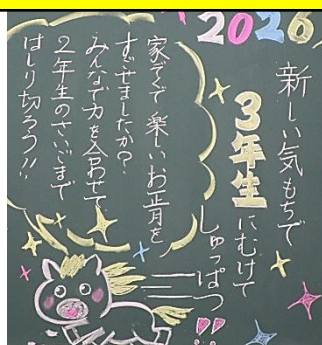 2026
新しい気もちで
3年生にむけて
しゅっぱつ!!
家ぞくで楽しいお正月を
すごせましたか?
みんなで力を合わせて
2年生のさいごまで
はしり切ろう!!